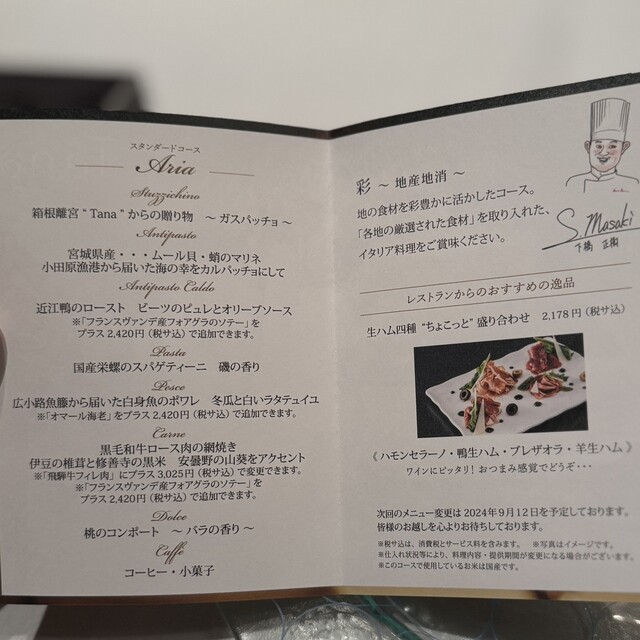 スタンダードコース
Aria
Stuzzichino
箱根離宮 “ Tana ” からの贈り物　～ ガスパッチョ ～
Antipasto
宮城県産・・・ムール貝・蛸のマリネ
小田原漁港から届いた海の幸をカルパッチョにして
Antipasto Caldo
近江鴨のロースト　ビーツのピュレとオリーブソース
※「フランスヴァンデ産フォアグラのソテー」を
プラス 2,420円（税サ込）で追加できます。
Pasta
国産栄螺のスパゲティーニ　磯の香り
Pesce
広小路魚籐から届いた白身魚のポワレ　冬瓜と白いラタテュイユ
※「オマール海老」をプラス 2,420円（税サ込）で追加できます。
Carne
黒毛和牛ロース肉の網焼き
伊豆の椎茸と修善寺の黒米　安曇野の山葵をアクセント
※「飛騨牛フィレ肉」にプラス 3,025円（税サ込）で変更できます。
※「フランスヴァンデ産フォアグラのソテー」を
プラス 2,420円（税サ込）で追加できます。
Dolce
桃のコンポート　～ バラの香り ～
Caffè
コーヒー・小菓子
彩 ～ 地産地消 ～
地の食材を彩豊かに活かしたコース。
「各地の厳選された食材」を取り入れた、
イタリア料理をご賞味ください。
S. Masaki
レストランからのおすすめの逸品
生ハム四種 “ちょこっと” 盛り合わせ　2,178円（税サ込）
《 ハモンセラーノ・鴨生ハム・ブレザオラ・羊生ハム 》
ワインにピッタリ! おつまみ感覚でどうぞ・・・
次回のメニュー変更は 2024年9月12日を予定しております。
皆様のお越しを心よりお待ちしております。
※税サ込は、消費税とサービス料を含みます。　※写真はイメージです。
※仕入れ状況等により、料理内容・提供期間が変更になる場合がございます。
※このコースで使用しているお米は国産です。